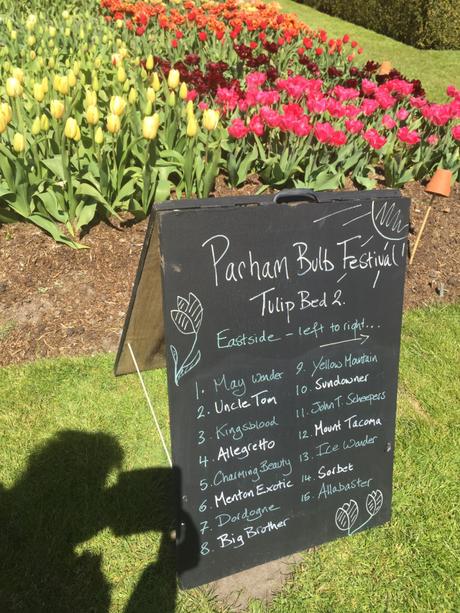 Parham Bulb Festival!
Tulip Bed 2.
Eastside - left to right...
1. May Wonder
2. Uncle Tom
3. Kingsblood
4. Allegretto
5. Charming Beauty
6. Menton Exotic
7. Dordogne
8. Big Brother
9. Yellow Mountain
10. Sundowner
11. John T. Scheepers
12. Mount Tacoma
13. Ice Wonder
14. Sorbet
15. Allabaster